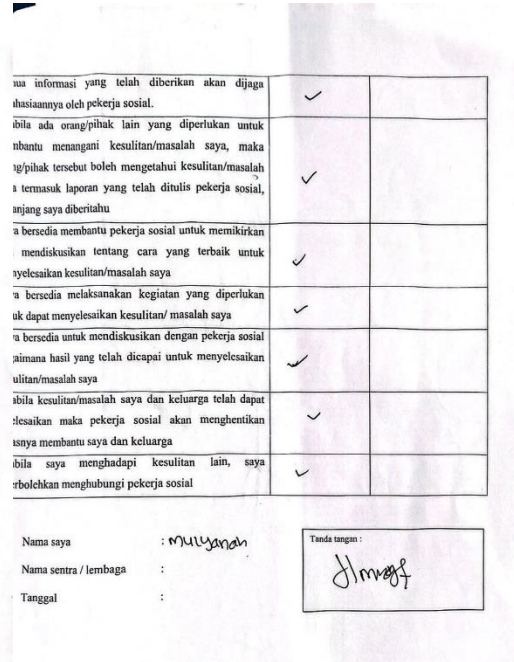 ua informasi yang telah diberikan akan dijaga
ahasiaannya oleh pekerja sosial.
abila ada orang/pihak lain yang diperlukan untuk
mbantu menangani kesulitan/masalah saya, maka
ng/pihak tersebut boleh mengetahui kesulitan/masalah
a termasuk laporan yang telah ditulis pekerja sosial,
anjang saya diberitahu
a bersedia membantu pekerja sosial untuk memikirkan
mendiskusikan tentang cara yang terbaik untuk
nyelesaikan kesulitan/masalah saya
a bersedia melaksanakan kegiatan yang diperlukan
uk dapat menyelesaikan kesulitan/ masalah saya
a bersedia untuk mendiskusikan dengan pekerja sosial
aimana hasil yang telah dicapai untuk menyelesaikan
ulitan/masalah saya
abila kesulitan/masalah saya dan keluarga telah dapat
elesaikan maka pekerja sosial akan menghentikan
asnya membantu saya dan keluarga
bila saya menghadapi kesulitan lain, saya
erbolehkan menghubungi pekerja sosial
Nama saya : Mulyanah
Nama sentra / lembaga :
Tanggal :
Tanda tangan :